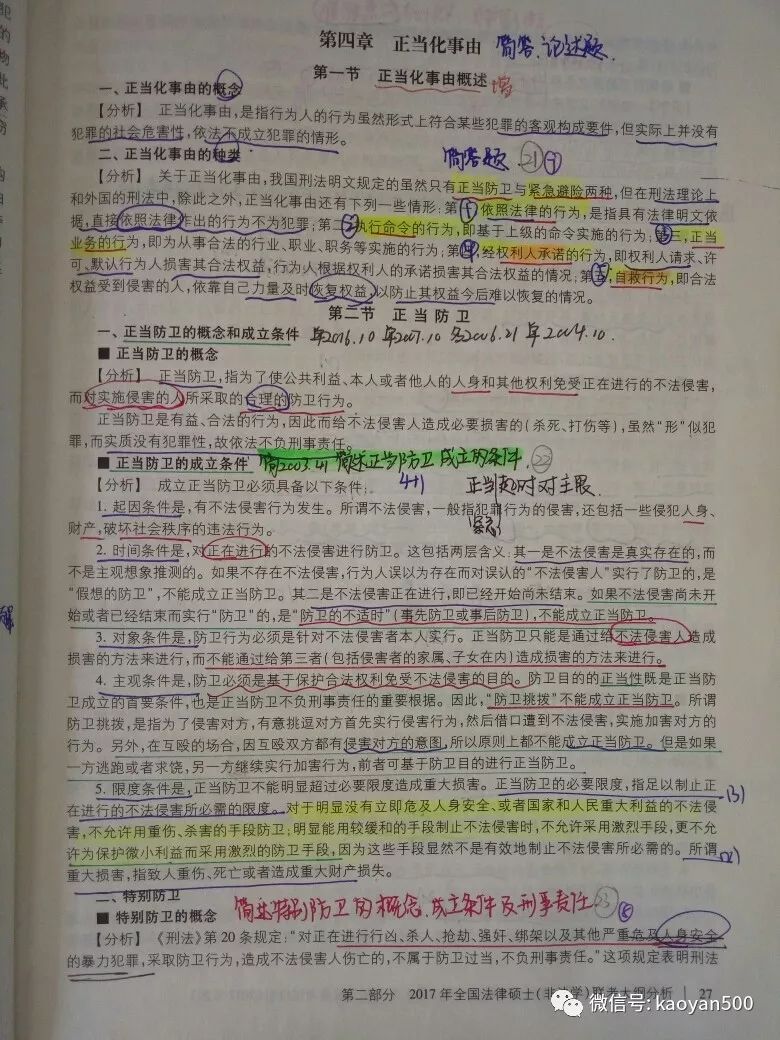 第四章 正当化事由 简答、论述题.
第一节 正当化事由概述
一、正当化事由的概念
【分析】 正当化事由,是指行为人的行为虽然形式上符合某些犯罪的客观构成要件,但实际上并没有
犯罪的社会危害性,依法不成立犯罪的情形。
二、正当化事由的种类 简答题 21
【分析】 关于正当化事由,我国刑法明文规定的虽然只有正当防卫与紧急避险两种,但在刑法理论上
和外国的刑法中,除此之外,正当化事由还有下列一些情形:第① 依照法律的行为,是指具有法律明文依
据,直接依照法律作出的行为不为犯罪;第二②执行命令的行为,即基于上级的命令实施的行为;第三,正当
业务的行为,即为从事合法的行业、职业、职务等实施的行为;第④,经权利人承诺的行为,即权利人请求、许
可、默认行为人损害其合法权益,行为人根据权利人的承诺损害其合法权益的情况;第⑤,自救行为,即合法
权益受到侵害的人,依靠自己力量及时恢复权益,以防止其权益今后难以恢复的情况。
第二节 正当防卫
一、正当防卫的概念和成立条件 单2016.10 单2007.10 多2006.21 单2004.10.
■ 正当防卫的概念
【分析】 正当防卫,指为了使公共利益、本人或者他人的人身和其他权利免受正在进行的不法侵害,
而对实施侵害的人所采取的合理的防卫行为。
正当防卫是有益、合法的行为,因此而给不法侵害人造成必要损害的(杀死、打伤等),虽然“形”似犯
罪,而实质没有犯罪性,故依法不负刑事责任。
■ 正当防卫的成立条件 简2003.41 简述正当防卫成立的条件. 22
【分析】 成立正当防卫必须具备以下条件: 4+1 正当起时对主限.
1. 起因条件是,有不法侵害行为发生。所谓不法侵害,一般指犯罪行为的侵害,还包括一些侵犯人身、
财产,破坏社会秩序的违法行为。
2. 时间条件是,对正在进行的不法侵害进行防卫。这包括两层含义:其一是不法侵害是真实存在的,而
不是主观想象推测的。如果不存在不法侵害,行为人误以为存在而对误认的“不法侵害人”实行了防卫的,是
“假想的防卫”,不能成立正当防卫。其二是不法侵害正在进行,即已经开始尚未结束。如果不法侵害尚未开
始或者已经结束而实行“防卫”的,是“防卫的不适时”(事先防卫或事后防卫),不能成立正当防卫。
3. 对象条件是,防卫行为必须是针对不法侵害者本人实行。正当防卫只能是通过给不法侵害人造成
损害的方法来进行,而不能通过给第三者(包括侵害者的家属、子女在内)造成损害的方法来进行。
4. 主观条件是,防卫必须是基于保护合法权利免受不法侵害的目的。防卫目的的正当性既是正当防
卫成立的首要条件,也是正当防卫不负刑事责任的重要根据。因此,“防卫挑拨”不能成立正当防卫。所谓
防卫挑拨,是指为了侵害对方,有意挑逗对方首先实行侵害行为,然后借口遭到不法侵害,实施加害对方的
行为。另外,在互殴的场合,因互殴双方都有侵害对方的意图,所以原则上都不能成立正当防卫。但是如果
一方逃跑或者求饶,另一方继续实行加害行为,前者可基于防卫目的进行正当防卫。
5. 限度条件是,正当防卫不能明显超过必要限度造成重大损害。正当防卫的必要限度,指足以制止正
在进行的不法侵害所必需的限度。对于明显没有立即危及人身安全、或者国家和人民重大利益的不法侵
害,不允许用重伤、杀害的手段防卫;明显能用较缓和的手段制止不法侵害时,不允许采用激烈手段,更不允
许为保护微小利益而采用激烈的防卫手段,因为这些手段显然不是有效地制止不法侵害所必需的。所谓
重大损害,指致人重伤、死亡或者造成重大财产损失。
二、特别防卫
■ 特别防卫的概念 简述特别防卫的概念、成立条件及刑事责任 23
【分析】 《刑法》第20条规定:“对正在进行行凶、杀人、抢劫、强奸、绑架以及其他严重危及人身安全
的暴力犯罪,采取防卫行为,造成不法侵害人伤亡的,不属于防卫过当,不负刑事责任。”这项规定表明刑法
第二部分 2017年全国法律硕士(非法学)联考大纲分析 27
微信号: kaoyan500